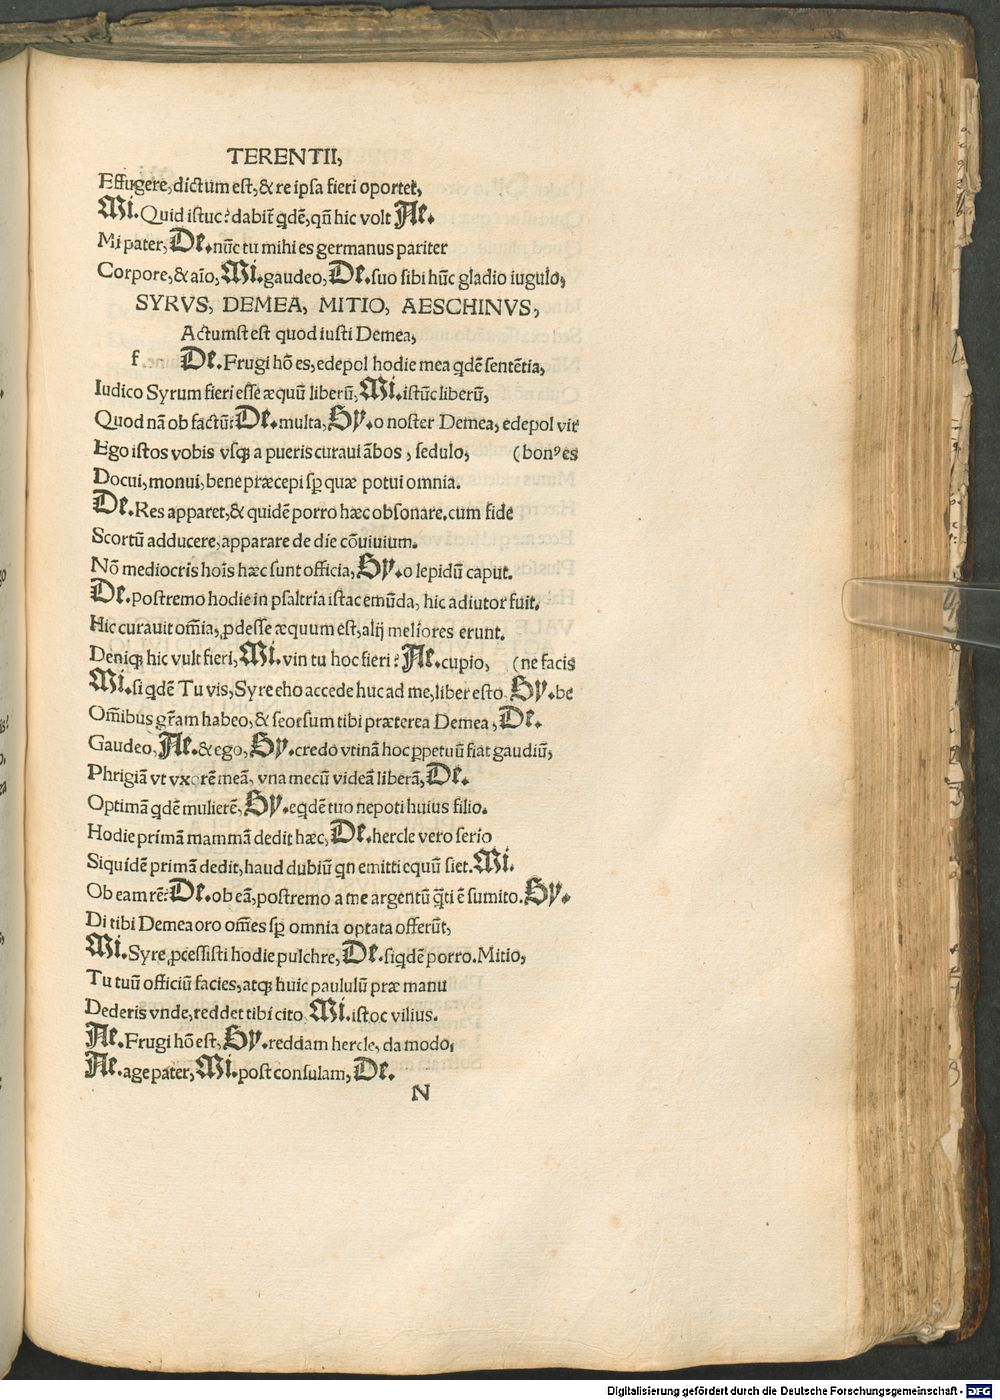 TERENTII,
Effugere, dictum est, & re ipsa fieri oportet,
Mi. Quid istuc? dabit̃ qdẽ, qñ hic volt Ae.
Mi pater, De. nũc tu mihi es germanus pariter
Corpore, & aĩo, Mi. gaudeo, De. suo sibi hũc gladio iugulo,
SYRVS, DEMEA, MITIO, AESCHINVS,
Actumst est quod iusti Demea,
f. De. Frugi hõ es, edepol hodie mea qdẽ sentẽtia,
Iudico Syrum fieri esse æquũ liberũ, Mi. istũc liberũ,
Quod nã ob factũ? De. multa, Sy. o noster Demea, edepol vir
Ego istos vobis vsqꝫ a pueris curaui ãbos, sedulo, (bonꝰ es
Docui, monui, bene præcepi sp̃ quæ potui omnia.
De. Res apparet, & quidẽ porro hæc obsonare. cum fide
Scortũ adducere, apparare de die cõuiuium.
Nõ mediocris hoĩs hæc sunt officia, Sy. o lepidũ caput.
De. postremo hodie in psaltria istac emũda, hic adiutor fuit.
Hic curauit om̃ia, ꝓdesse æquum est, alij meliores erunt.
Deniqꝫ hic vult fieri, Mi. vin tu hoc fieri? Ae. cupio, (ne facis
Mi. si qdẽ Tu vis, Syre eho accede huc ad me, liber esto. Sy. be
Om̃ibus gr̃am habeo, & seorsum tibi præterea Demea, De.
Gaudeo, Ae. & ego, Sy. credo vtinã hoc ꝑpetuũ fiat gaudiũ,
Phrigiã vt vxorẽ meã, vna mecũ videã liberã, De.
Optimã qdẽ mulierẽ, Sy. eqdẽ tuo nepoti huius filio.
Hodie primã mammã dedit hæc, De. hercle vero serio
Siquidẽ primã dedit, haud dubiũ qn emitti equũ siet. Mi.
Ob eam rẽ? De. ob eã, postremo a me argentũ q̃ti ẽ sumito. Sy.
Di tibi Demea oro om̃es sp̃ omnia optata offerũt,
Mi. Syre, ꝓcessisti hodie pulchre, De. siqdẽ porro. Mitio,
Tu tuũ officiũ facies, atqꝫ huic paululũ præ manu
Dederis vnde, reddet tibi cito. Mi. istoc vilius.
Ae. Frugi hõ est, Sy. reddam hercle, da modo,
Ae. age pater, Mi. post consulam, De.
N
Digitalisierung gefördert durch die Deutsche Forschungsgemeinschaft - DFG